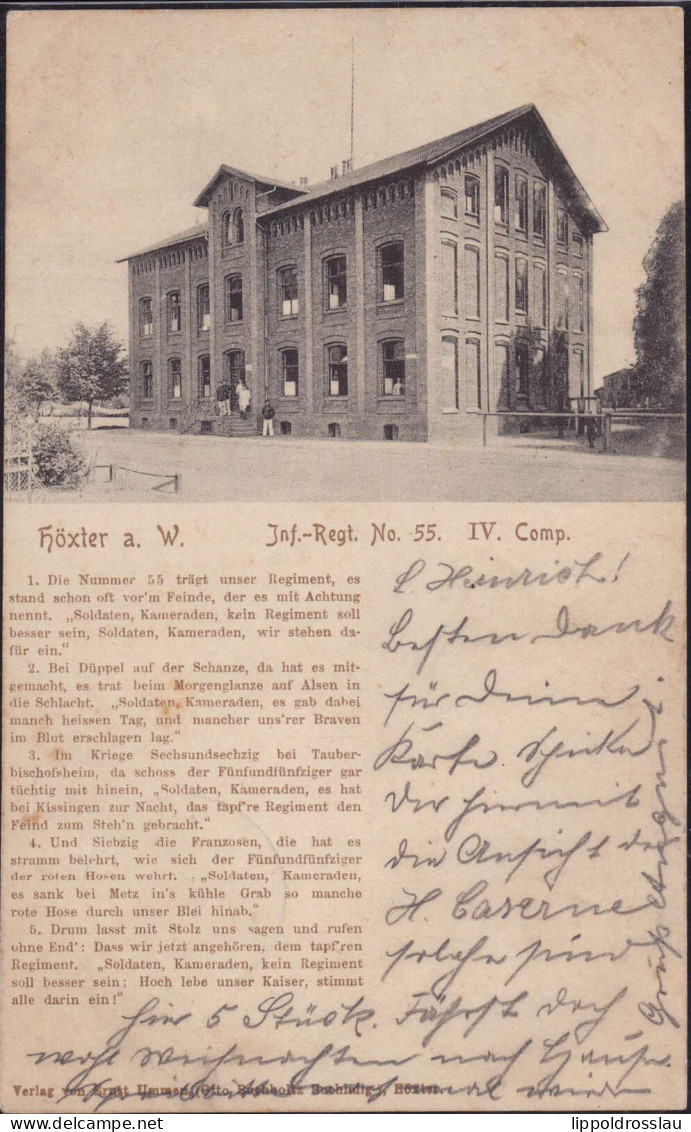 Höxter a. W.
Inf.-Regt. No. 55. IV. Comp.
1. Die Nummer 55 trägt unser Regiment, es
stand schon oft vor'm Feinde, der es mit Achtung
nennt. „Soldaten, Kameraden, kein Regiment soll
besser sein, Soldaten, Kameraden, wir stehen da-
für ein.“
2. Bei Düppel auf der Schanze, da hat es mit-
gemacht, es trat beim Morgenglanze auf Alsen in
die Schlacht. „Soldaten, Kameraden, es gab dabei
manch heissen Tag, und mancher uns'rer Braven
im Blut erschlagen lag.“
3. Im Kriege Sechsundsechzig bei Tauber-
bischofsheim, da schoss der Fünfundfünfziger gar
tüchtig mit hinein, „Soldaten, Kameraden, es hat
bei Kissingen zur Nacht, das tapf're Regiment den
Feind zum Steh'n gebracht.“
4. Und Siebzig die Franzosen, die hat es
stramm belehrt, wie sich der Fünfundfünfziger
der roten Hosen wehrt. „Soldaten, Kameraden,
es sank bei Metz in's kühle Grab so manche
rote Hose durch unser Blei hinab.“
5. Drum lasst mit Stolz uns sagen und rufen
ohne End': Dass wir jetzt angehören, dem tapf'ren
Regiment. „Soldaten, Kameraden, kein Regiment
soll besser sein; Hoch lebe unser Kaiser, stimmt
alle darin ein!“
L. Heinrich!
Besten Dank
für Deine
Karte. Schicke
Dir hiermit
die Ansicht der
H. Caserne
solche sind
hier 5 Stück. Fährst doch
wohl Weihnachten nach Hause.
mal wieder
Gruß August
Verlag von Ernst Ummen, (Otto Buchholtz Buchhdlg.), Höxter.
lippoldrosslau